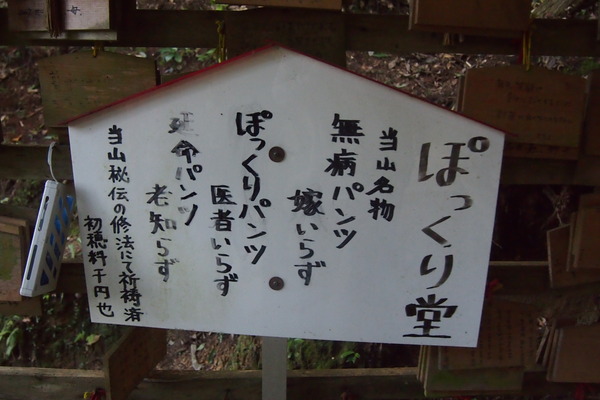 ぽっくり堂
当山名物
無病パンツ
嫁いらず
ぽっくりパンツ
医者いらず
延命パンツ
老知らず
当山秘伝の修法にて祈祷済
初穂料千円也